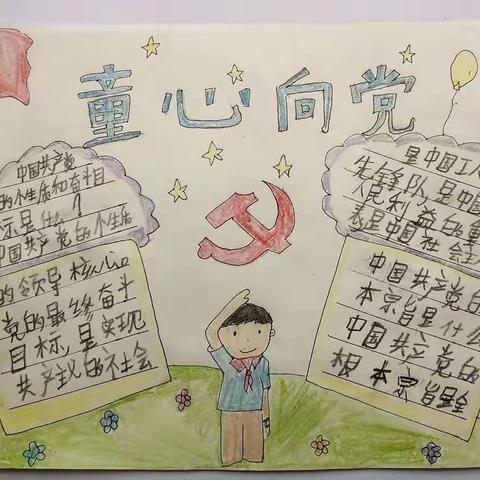 童心向党
中国共产党
的个性质和奋斗目
标是什么?
中国共产党的个性质
的领导核心。
党的最终奋斗
目标,是实现
共产主义的社会
是中国工人
先锋队,是中国
人民利益的
表是中国社会主
中国共产党的
本宗旨是什么
中国共产党的
根本宗旨是全